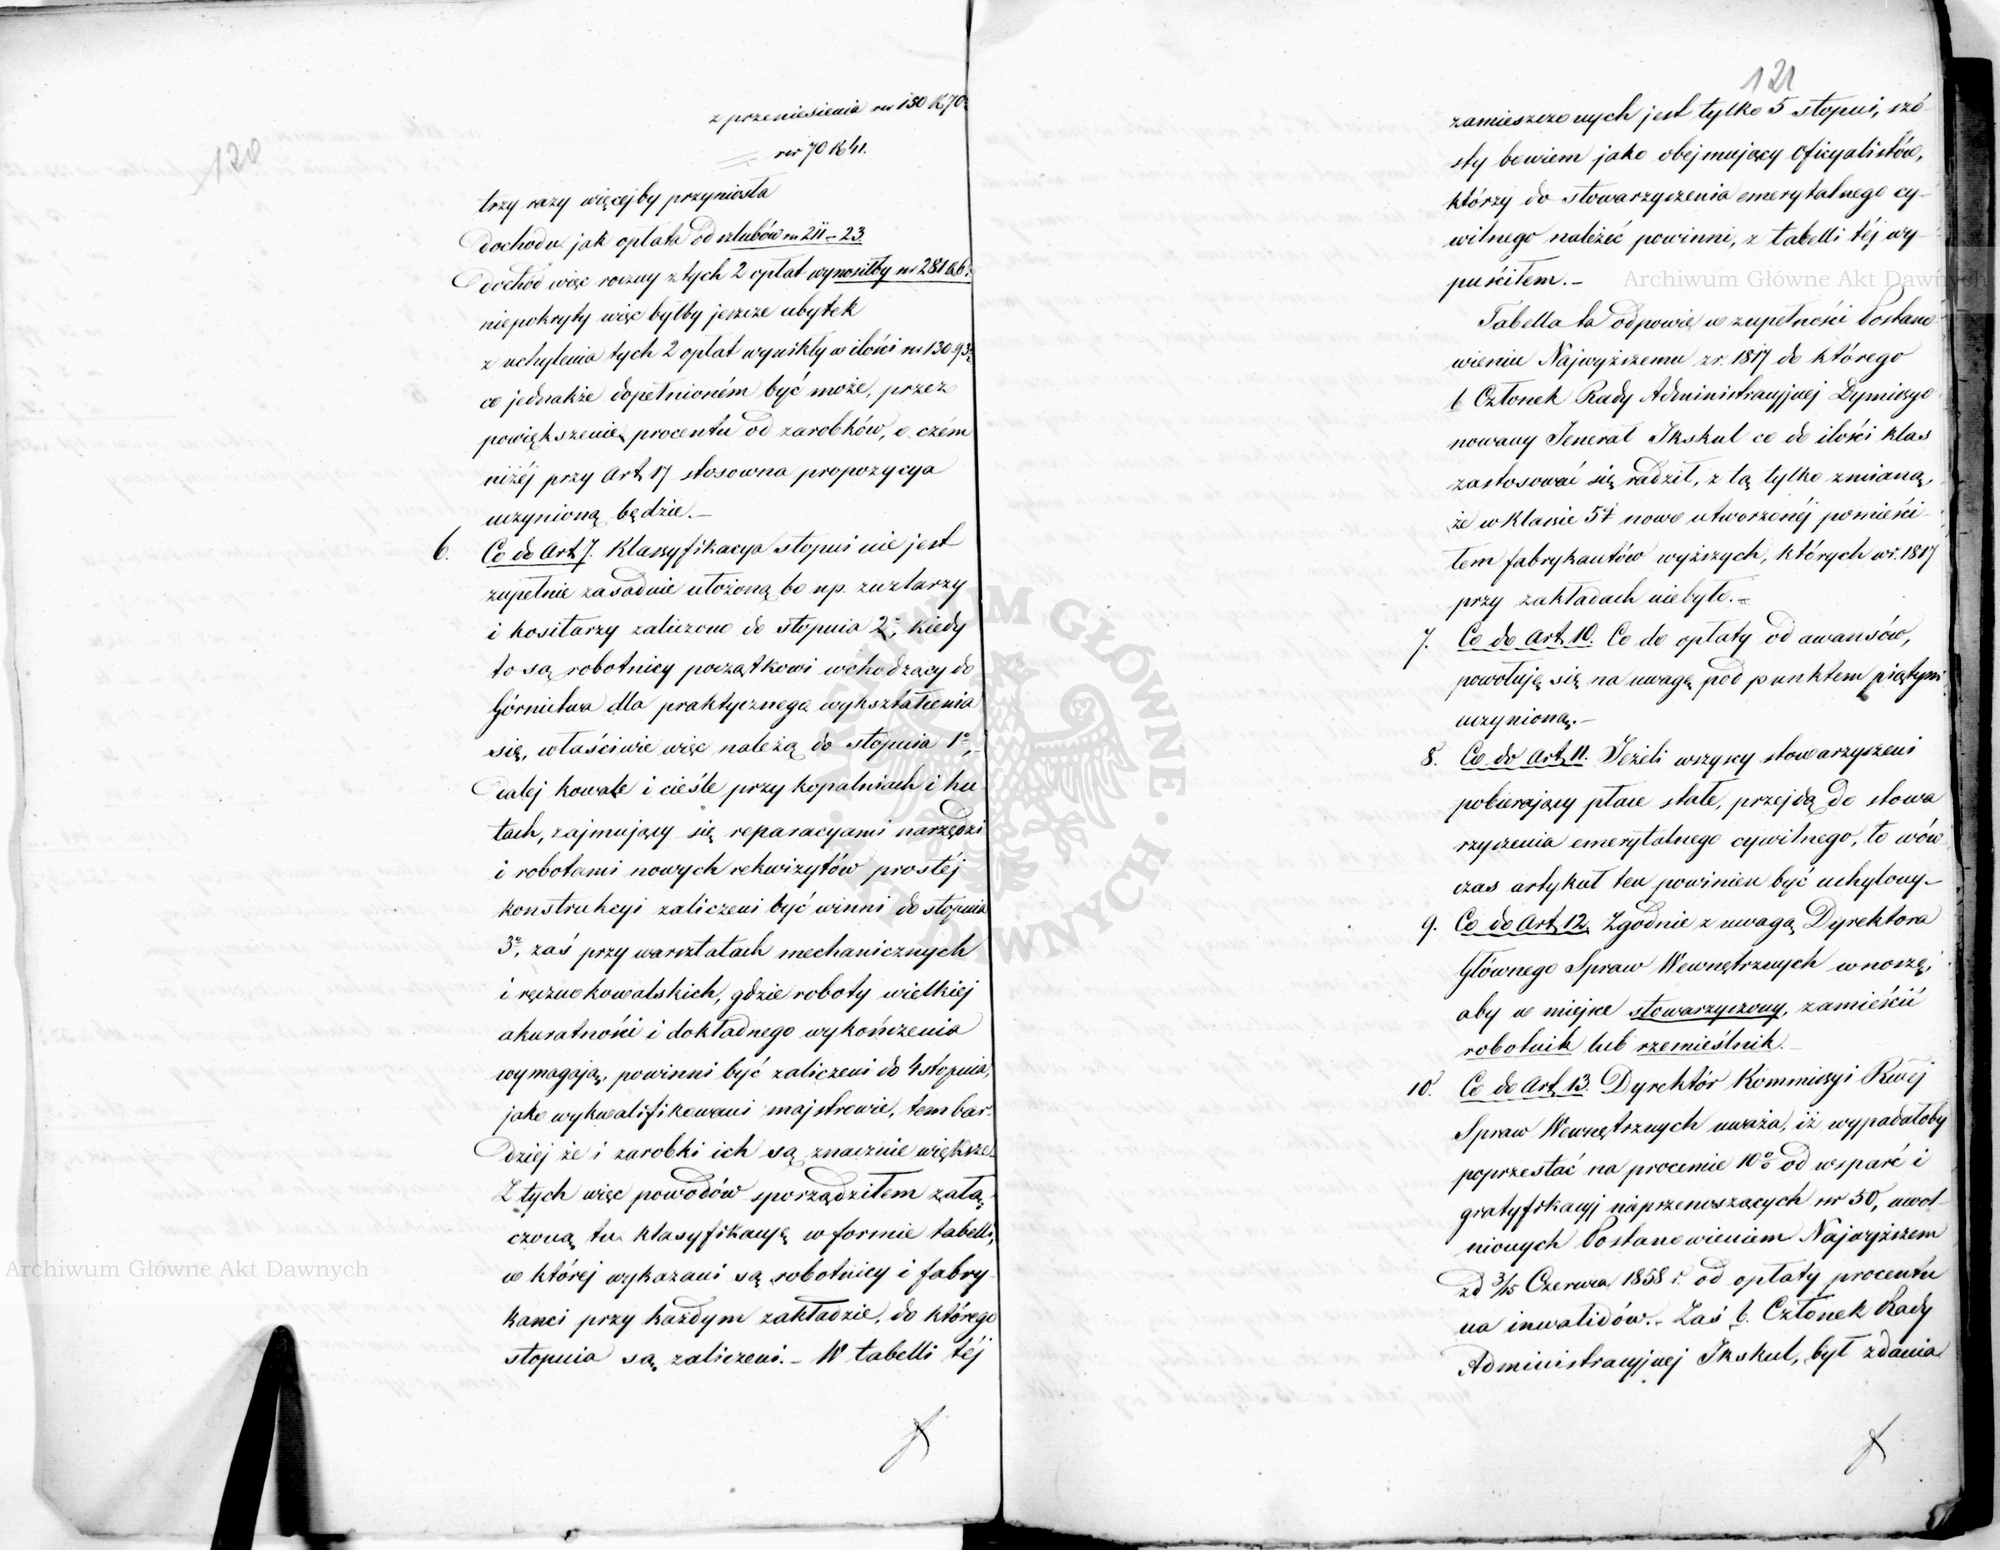 120
z przeniesienia rsr 130 k 70.
rsr 70 k 41.
trzy razy więcejby przyniosła
dochodu jak opłata od szlubów rs 211 - 23.
dochód więc roczny z tych 2 opłat wynosiłby rsr 281 k 6.
niepokryty więc byłby jeszcze ubytek
z uchylenia tych 2 opłat wynikły w ilości rsr 130.93½
co jednakże dopełnioném być może, przez
powiększenie procentu od zarobków, o czém
niżéj przy Art 17 stosowna propozycya
uczynioną będzie.-
6. Co do Art 7. Klassyfikacya stopni nie jest
zupełnie zasadnie ułożoną bo np. zuzlarzy
i kositarzy zaliczono do stopnia 2o, kiedy
to są robotnicy początkowi wchodzący do
Górnictwa dla praktycznego wykształcenia
się, właściwie więc należą do stopnia 1o,
Dalej kowale i cieśle przy kopalniach i hu
tach, zajmujący się reparacyami narzędzi
i robotami nowych rekwizytów prostéj
konstrukcyi zaliczeni być winni do stopnia
3o, zaś przy warsztatach mechanicznych
i ręczno kowalskich, gdzie roboty wielkiej
akuratności i dokładnego wykończenia
wymagają, powinni być zaliczeni do 4 stopnia,
jako wykwalifikowani majstrowie, tem bar-
dziej że i zarobki ich są znacznie większe.
Z tych więc powodów sporządziłem załą-
czoną tu klasyfikacyę w formie tabelli,
w której wykazani są robotnicy i fabry-
kanci przy każdym zakładzie, do którego
stopnia są zaliczeni.- W tabelli téj
121
zamieszczonych jest tylko 5 stopni, szó-
sty bowiem jako obejmujący Oficyalistów,
którzy do stowarzyszenia emerytalnego cy-
wilnego należéć powinni, z tabelli téj wy-
puściłem.-
Tabella ta odpowie w zupełności Postano
wieniu Najwyższemu z r. 1817 do którego
b Członek Rady Administracyjnej Dymisyo
nowany Jenerał Ikskul co do ilości klas
zastosować się radził, z tą tylko zmianą,
że w klassie 5t nowo utworzonéj pomieści-
łem fabrykantów wyższych, których w r. 1817
przy zakładach niebyło.-
7. Co do Art. 10. Co do opłaty od awansów,
powołuję się na uwagę pod punktem piątym
uczynioną.-
8. Co do Art 11. Jeżeli wszyscy stowarzyszeni
pobierający płace stałe, przejdą do stowa
rzyszenia emerytalnego cywilnego, to wów
czas artykuł ten powinien być uchylony.-
9. Co do Art 12. Zgodnie z uwagą Dyrektora
Głównego Spraw Wewnętrznych wnoszę,
aby w miejsce stowarzyszony, zamieścić
robotnik lub rzemieślnik.-
10. Co do Art 13. Dyrektór Kommissyi Rwéj
Spraw Wewnętrznych uważa, iż wypadałoby
poprzestać na procencie 10% od wsparć i
gratyfikacyj nieprzenoszących rsr 50, uwol-
nionych Postanowieniem Najwyższem
zd 3/15 Czerwca 1858 r. od opłaty procentu
na inwalidów.- Zaś b. Członek Rady
Administracyjnej Ikskul, był zdania
Archiwum Główne Akt Dawnych
Archiwum Główne Akt Dawnych
ARCHIWUM GŁÓWNE AKT DAWNYCH